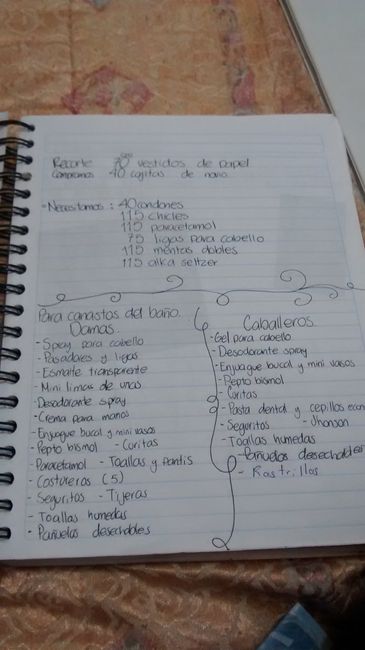 Recorte 70 vestidos de papel
Compramos 40 cajitas de novio
- Necesitamos : 40 condones
115 chicles
115 paracetamol
75 ligas para cabello
115 mentas dobles
115 alka seltzer
Para canastos del baño.
Damas.
- Spray para cabello
- Pasadores y ligas
- Esmalte transparente
- Mini limas de unas
- Desodorante spray
- Crema para manos
- Enjuague bucal y mini vasos
- Pepto bismol - Curitas
- Paracetamol - Toallas y pantis
- Costureros (5)
- Seguritos - Tijeras
- Toallas humedas
- Pañuelos desechables
Caballeros.
- Gel para cabello
- Desodorante spray
- Enjuague bucal y mini vasos
- Pepto bismol
- Curitas
- Pasta dental y cepillos econ
- Seguritos - Jhonson
- Toallas humedas
- Pañuelos desechables
- Rastrillos